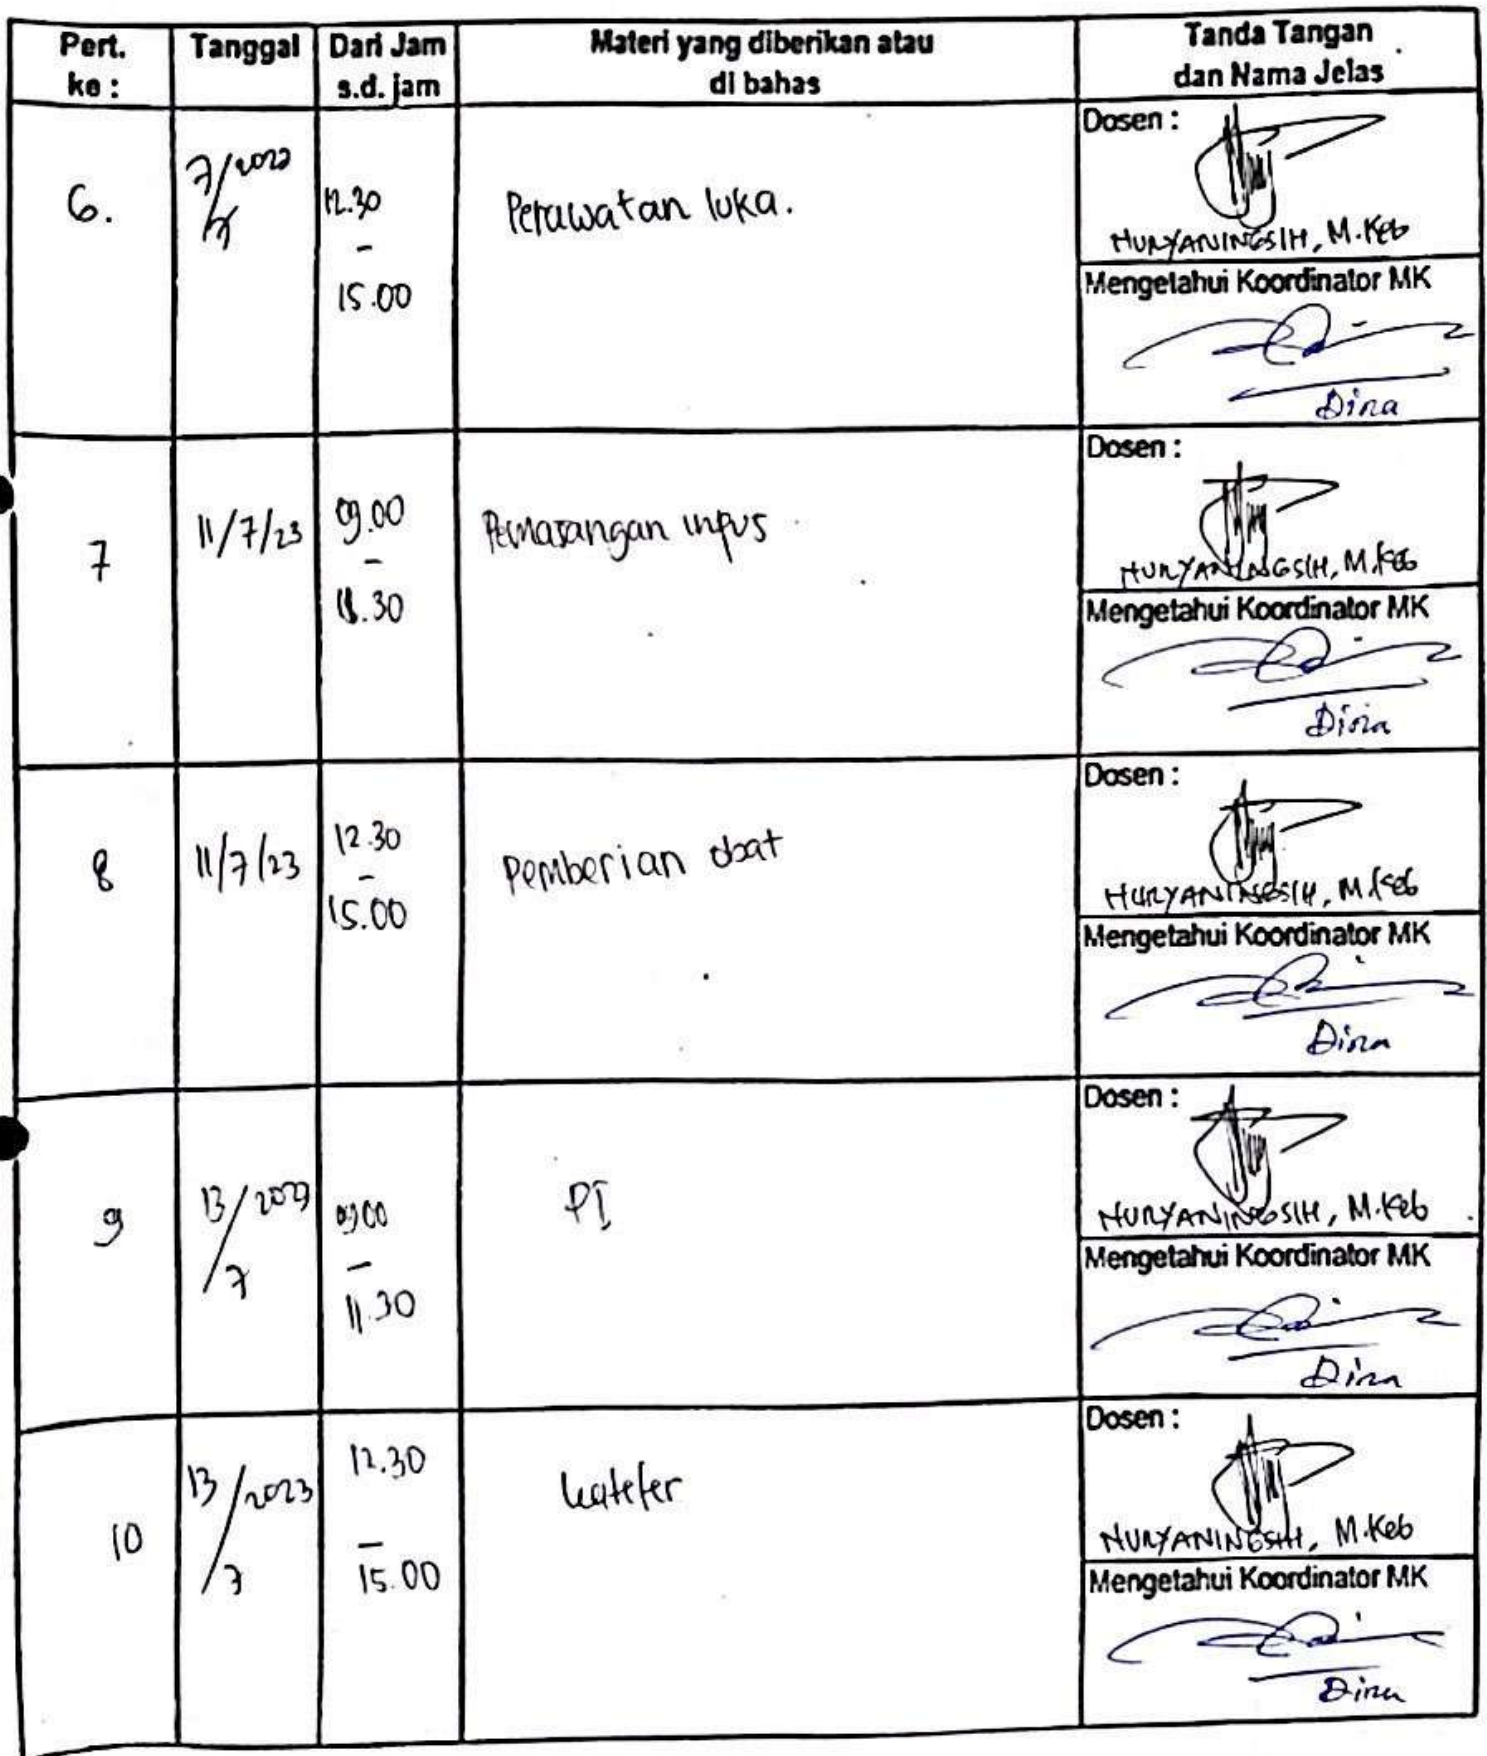 Pert. ke :
Tanggal
Dari Jam s.d. jam
Materi yang diberikan atau di bahas
Tanda Tangan dan Nama Jelas
6.
7/2023
12.30
-
15.00
Perawatan luka.
Dosen :
NURYANINGSIH, M.Keb
Mengetahui Koordinator MK
Dina
7
11/7/23
09.00
-
11.30
Pemasangan infus
Dosen :
NURYANINGSIH, M.Keb
Mengetahui Koordinator MK
Dina
8
11/7/23
12.30
-
15.00
Pemberian obat
Dosen :
NURYANINGSIH, M.Keb
Mengetahui Koordinator MK
Dina
9
13/2023
/7
09.00
-
11.30
PI
Dosen :
NURYANINGSIH, M.Keb
Mengetahui Koordinator MK
Dina
10
13/2023
/7
12.30
-
15.00
kateter
Dosen :
NURYANINGSIH, M.Keb
Mengetahui Koordinator MK
Dina